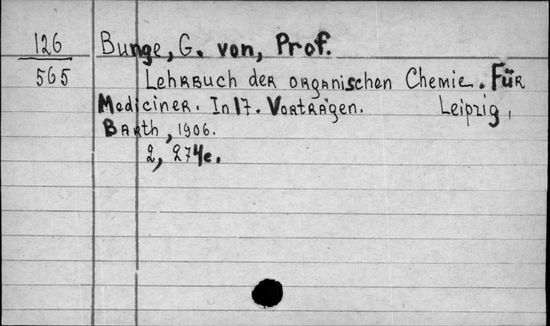 126 Bunge, G. von, Prof.
565 Lehrbuch der organischen Chemie. Für
Mediciner. In 17. Vorträgen. Leipzig,
Barth, 1906.
2, 274 c.